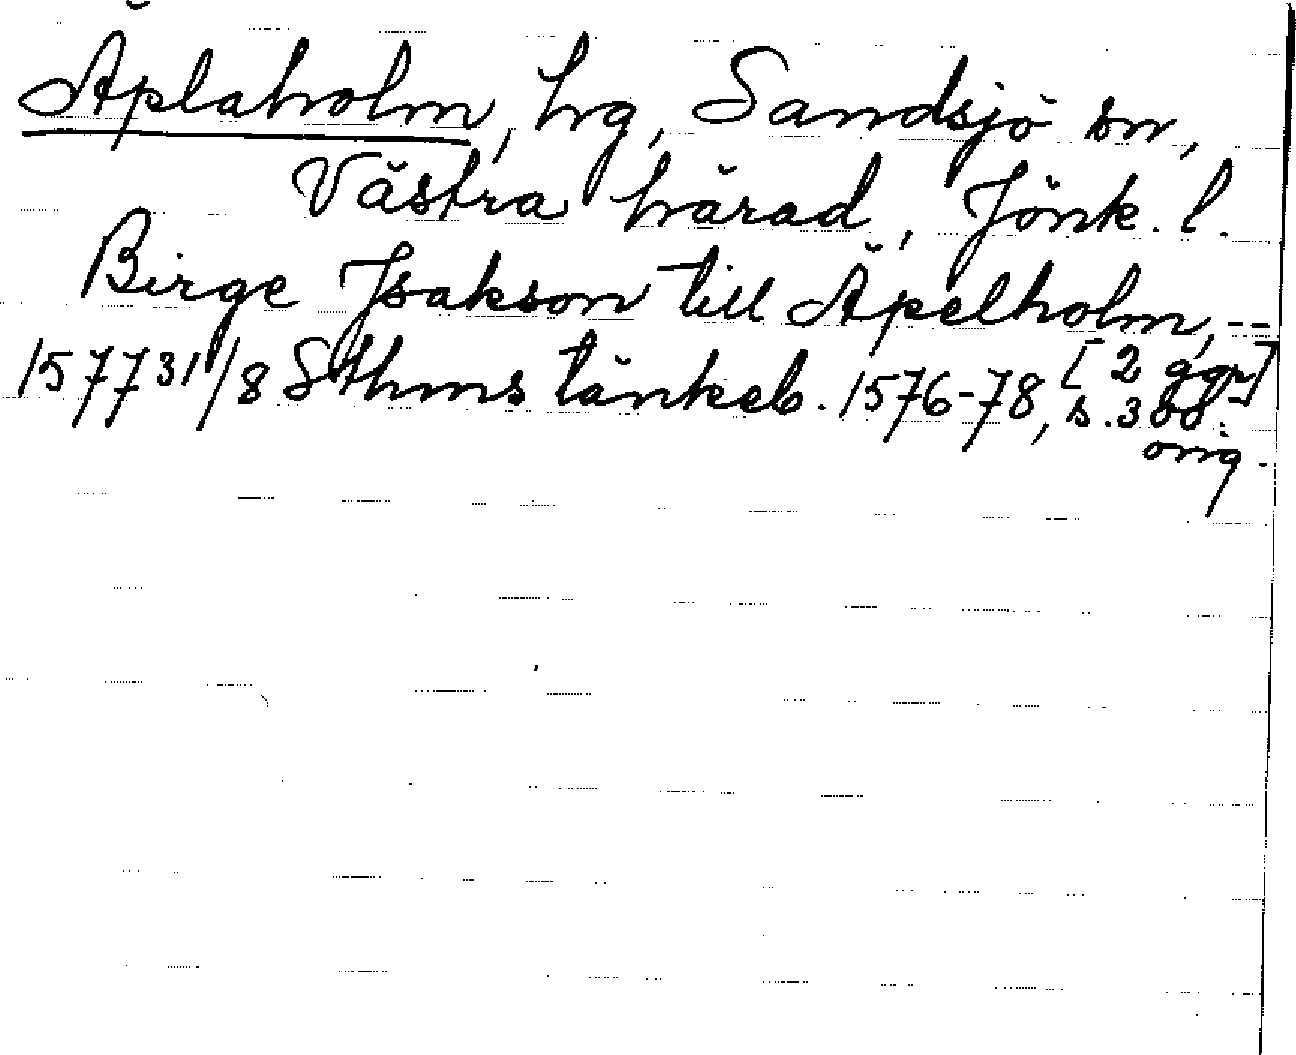 Äplaholm, hg, Sandsjö sn,
Västra härad, Jönk. l.
Birge Jsakson till Äpelholm, --
[2 ggr]
1577 31/8 Sthms tänkeb. 1576-78, s. 300.
orig.